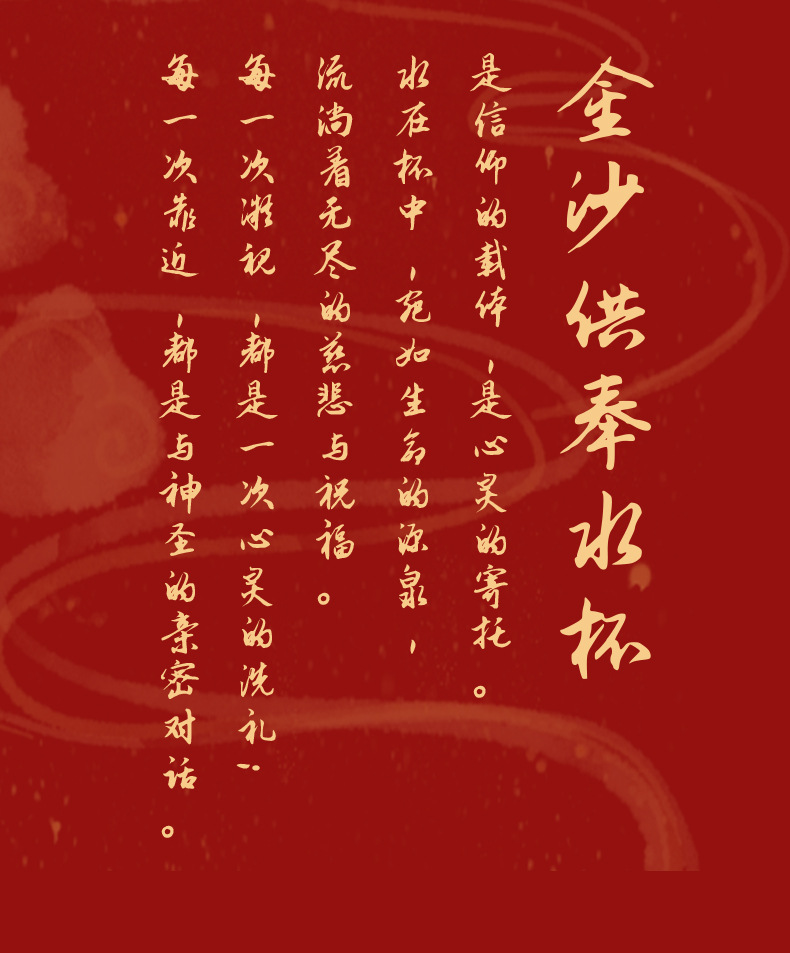 金沙供奉水杯
是信仰的载体，是心灵的寄托。
水在杯中，宛如生命的源泉，
流淌着无尽的慈悲与祝福。
每一次凝视，都是一次心灵的洗礼；
每一次靠近，都是与神圣的亲密对话。